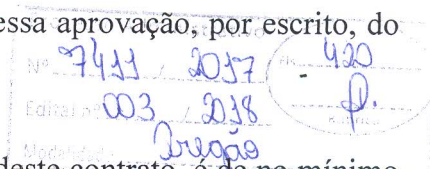 essa aprovação, por escrito, do
Nº 7411 / 2017 Fls. 420
Edital nº 003 / 2018
Modalidade Pregão
deste contrato, é de no mínimo